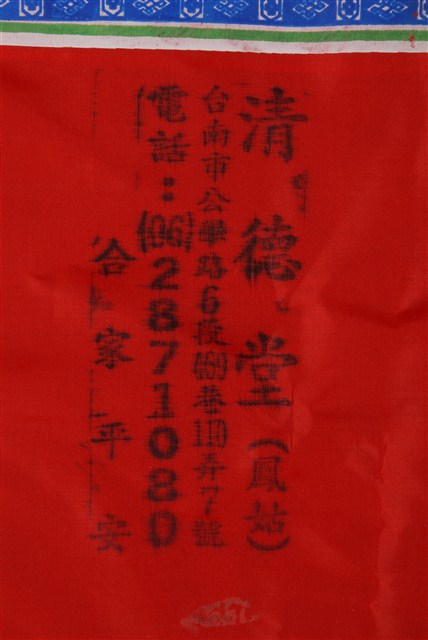 清德堂(鳳姑)
台南市公學路6段巷弄7號
電話:(06)2871080
合家平安